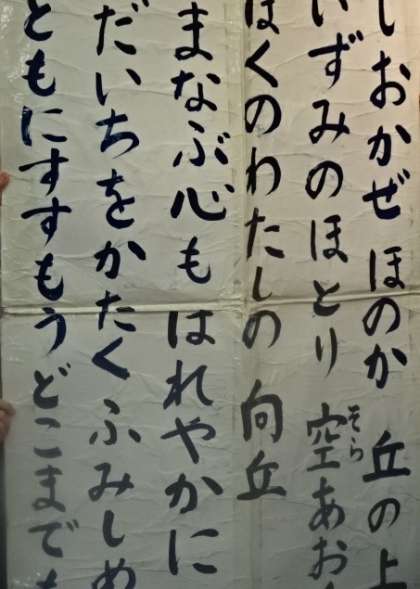 しおかぜ ほのか 丘の上
いずみのほとり 空あお
そら
ぼくのわたしの 向丘
まなぶ心も はれやかに
だいちをかたく ふみしめ
ともにすすもう どこまでも